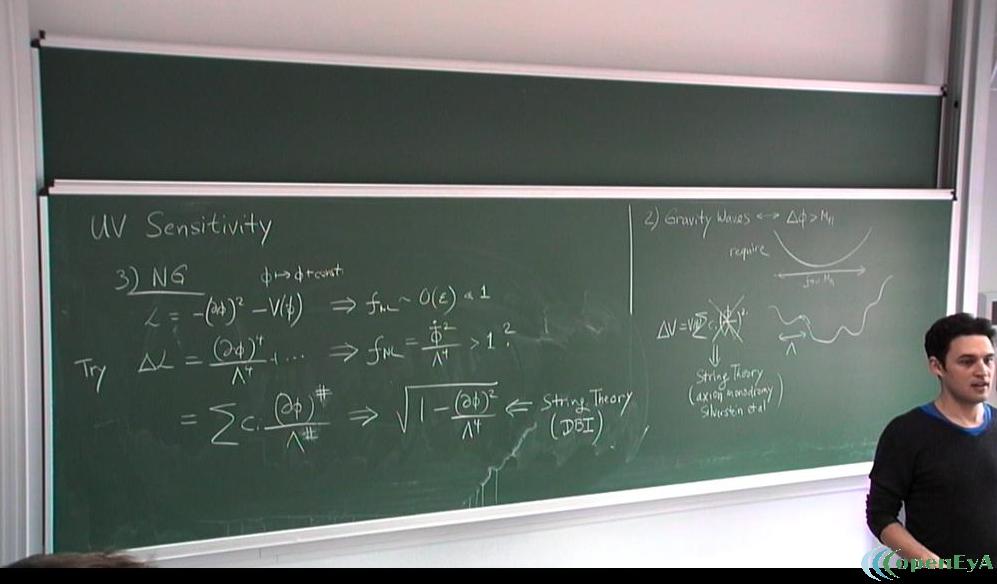 UV Sensitivity
3) NG φ ↦ φ + const
ℒ = -(∂φ)² - V(φ) ⇒ f_NL ~ O(ε) < 1
Try Δℒ = (∂φ)⁴/Λ⁴ + ... ⇒ f_NL = φ̇²/Λ⁴ > 1 ?
= Σ cᵢ (∂φ)^#/Λ^# ⇒ √(1 - (∂φ)²/Λ⁴) ⇐ String Theory
(DBI)
2) Gravity Waves ↔ Δφ > M_pl
require
f >> M_pl
ΔV = V Σ cᵢ
Λ
⇓
String Theory
(axion monodromy)
Silverstein et al
openEyA